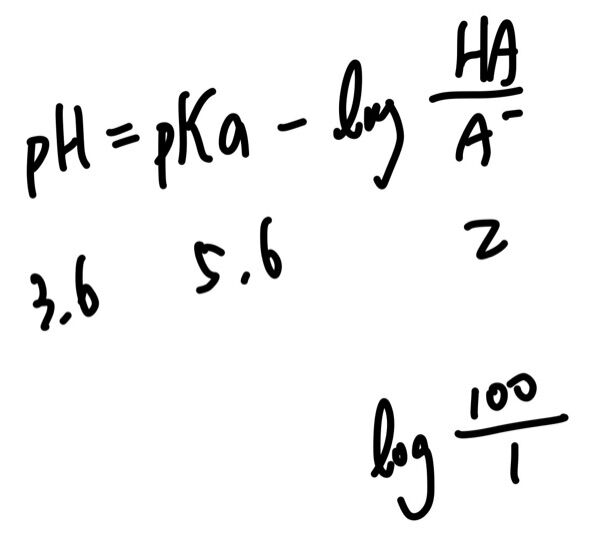 pH = pKa - log HA/A⁻
3.6 5.6 2
log 100/1